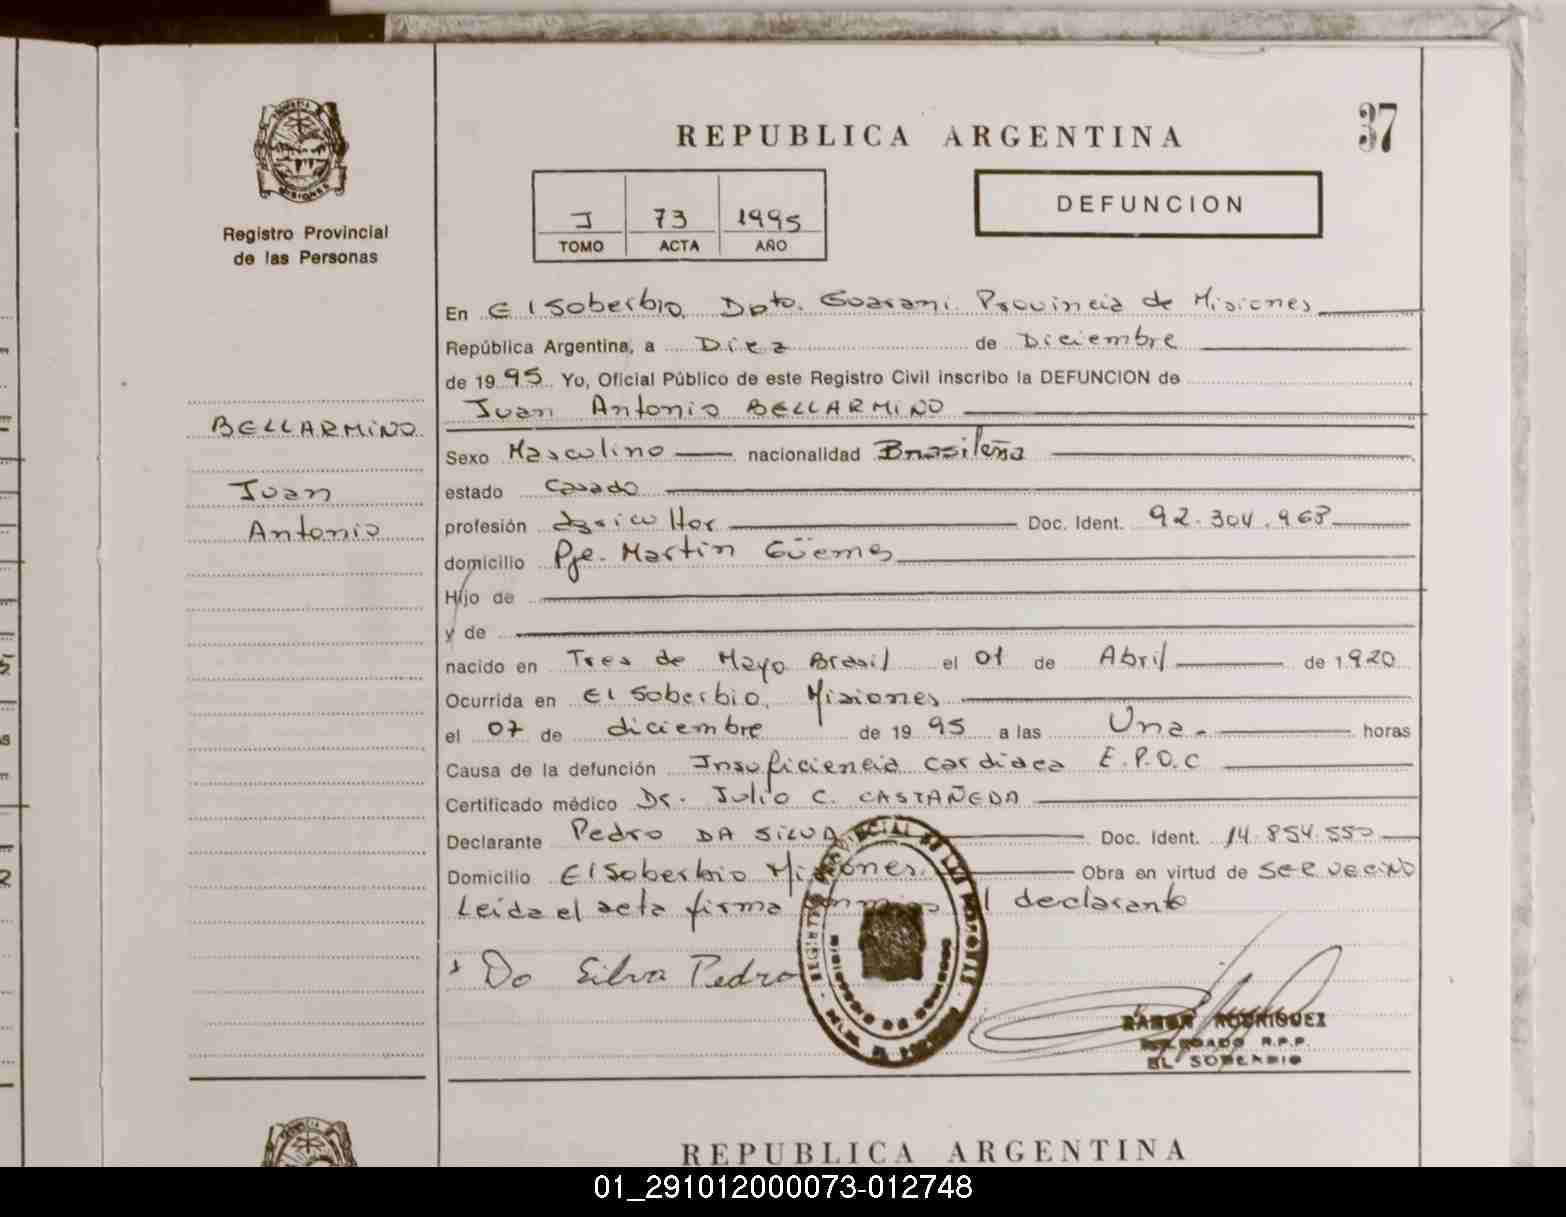 37
REPUBLICA ARGENTINA
DEFUNCION
I 73 1995
TOMO ACTA AÑO
MISIONES
Registro Provincial
de las Personas
BELLARMINO
Juan
Antonio
En El Soberbio, Dpto. Guarani. Provincia de Misiones
República Argentina, a Diez de Diciembre
de 19 95 Yo, Oficial Público de este Registro Civil inscribo la DEFUNCION de
Juan Antonio BELLARMINO
Sexo Masculino nacionalidad Brasileña
estado Casado
profesión Agricultor Doc. Ident. 92.304.968
domicilio Pje. Martin Güemes
Hijo de
y de
nacido en Tres de Mayo Brasil el 01 de Abril de 1920
Ocurrida en El Soberbio, Misiones
el 07 de diciembre de 19 95 a las Una. horas
Causa de la defunción Insuficiencia cardiaca E.P.O.C
Certificado médico Dr. Julio C. CASTAÑEDA
Declarante Pedro DA SILVA Doc. Ident. 14.854.550
Domicilio El Soberbio Misiones. Obra en virtud de ser vecino
Leida el acta firma conmigo el declarante
Da Silva Pedro
REGISTRO PROVINCIAL DE LAS PERSONAS
RAMON RODRIGUEZ
DELEGADO R.P.P.
EL SOBERBIO
REPUBLICA ARGENTINA
01_291012000073-012748